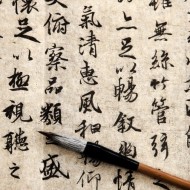 無絲竹管弦
亦足以暢敘幽情
氣清惠風和暢仰
大俯察品類盛
懷足以極視聽之